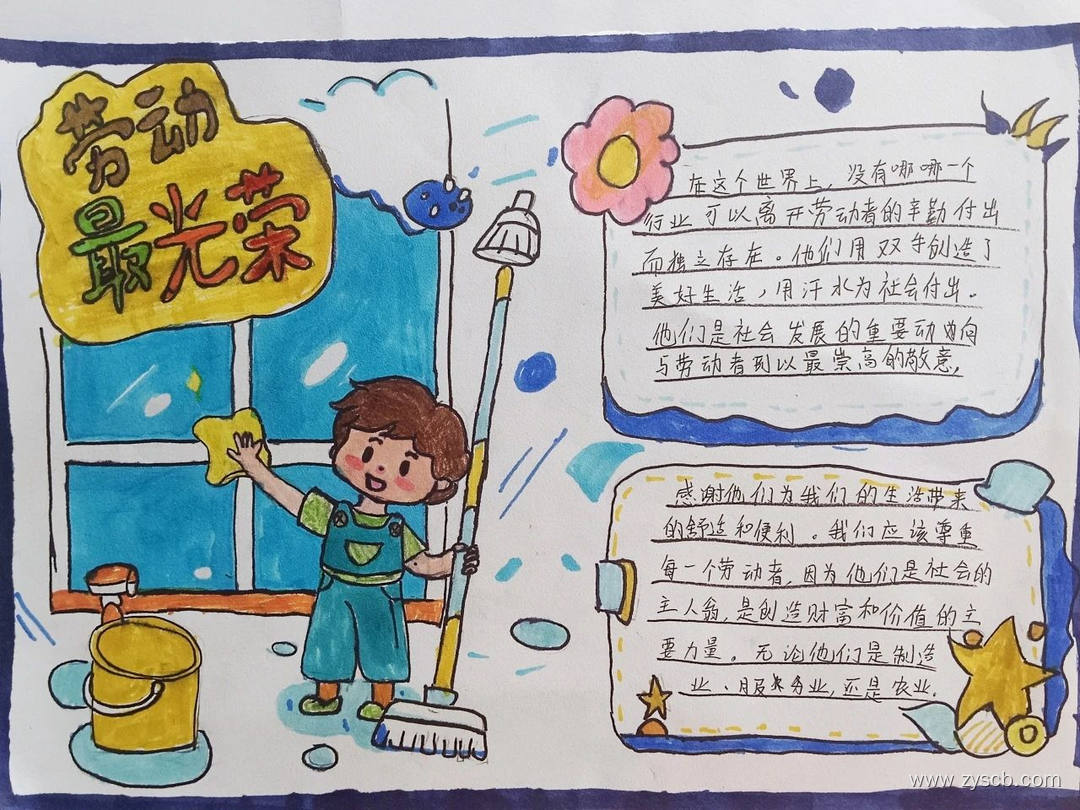 劳动
最光荣
在这个世界上，没有哪哪一个
行业可以离开劳动者的辛勤付出
而独立存在。他们用双手创造了
美好生活，用汗水为社会付出。
他们是社会发展的重要动
与劳动者 以最崇高的敬意，
感谢他们为我们的生活带来
的舒适和便利。我们应该尊重
每一个劳动者，因为他们是社会的
主人翁，是创造财富和价值的主
要力量。无论他们是制造
业、服务业，还是农业.
www.zyscb.com